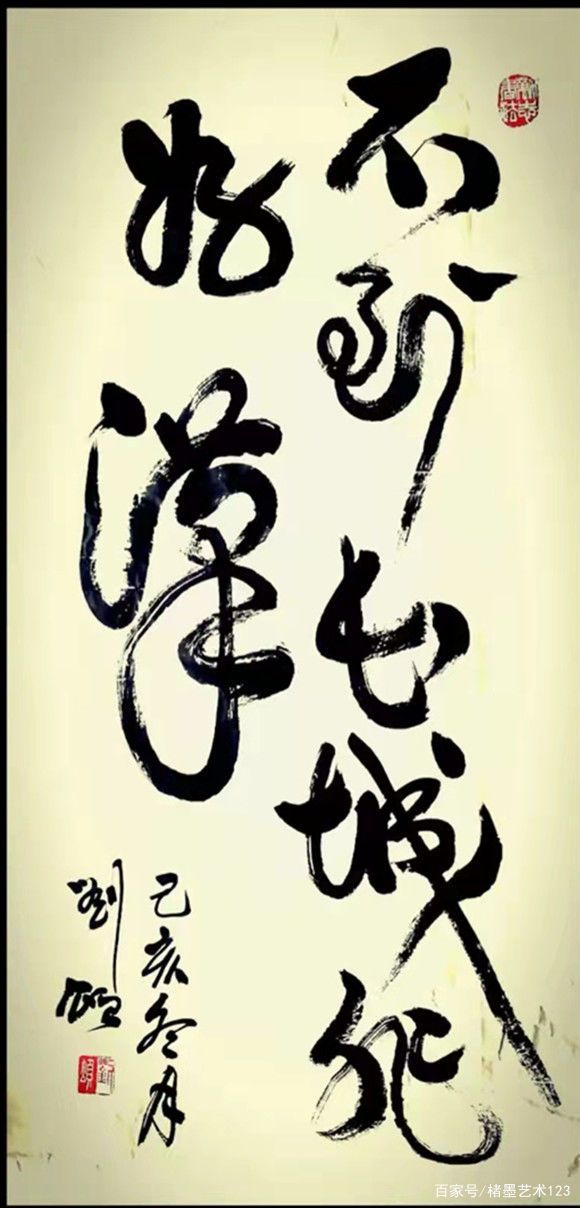 不到長城非
好漢
己亥冬月
劉
百家号/楮墨艺术123